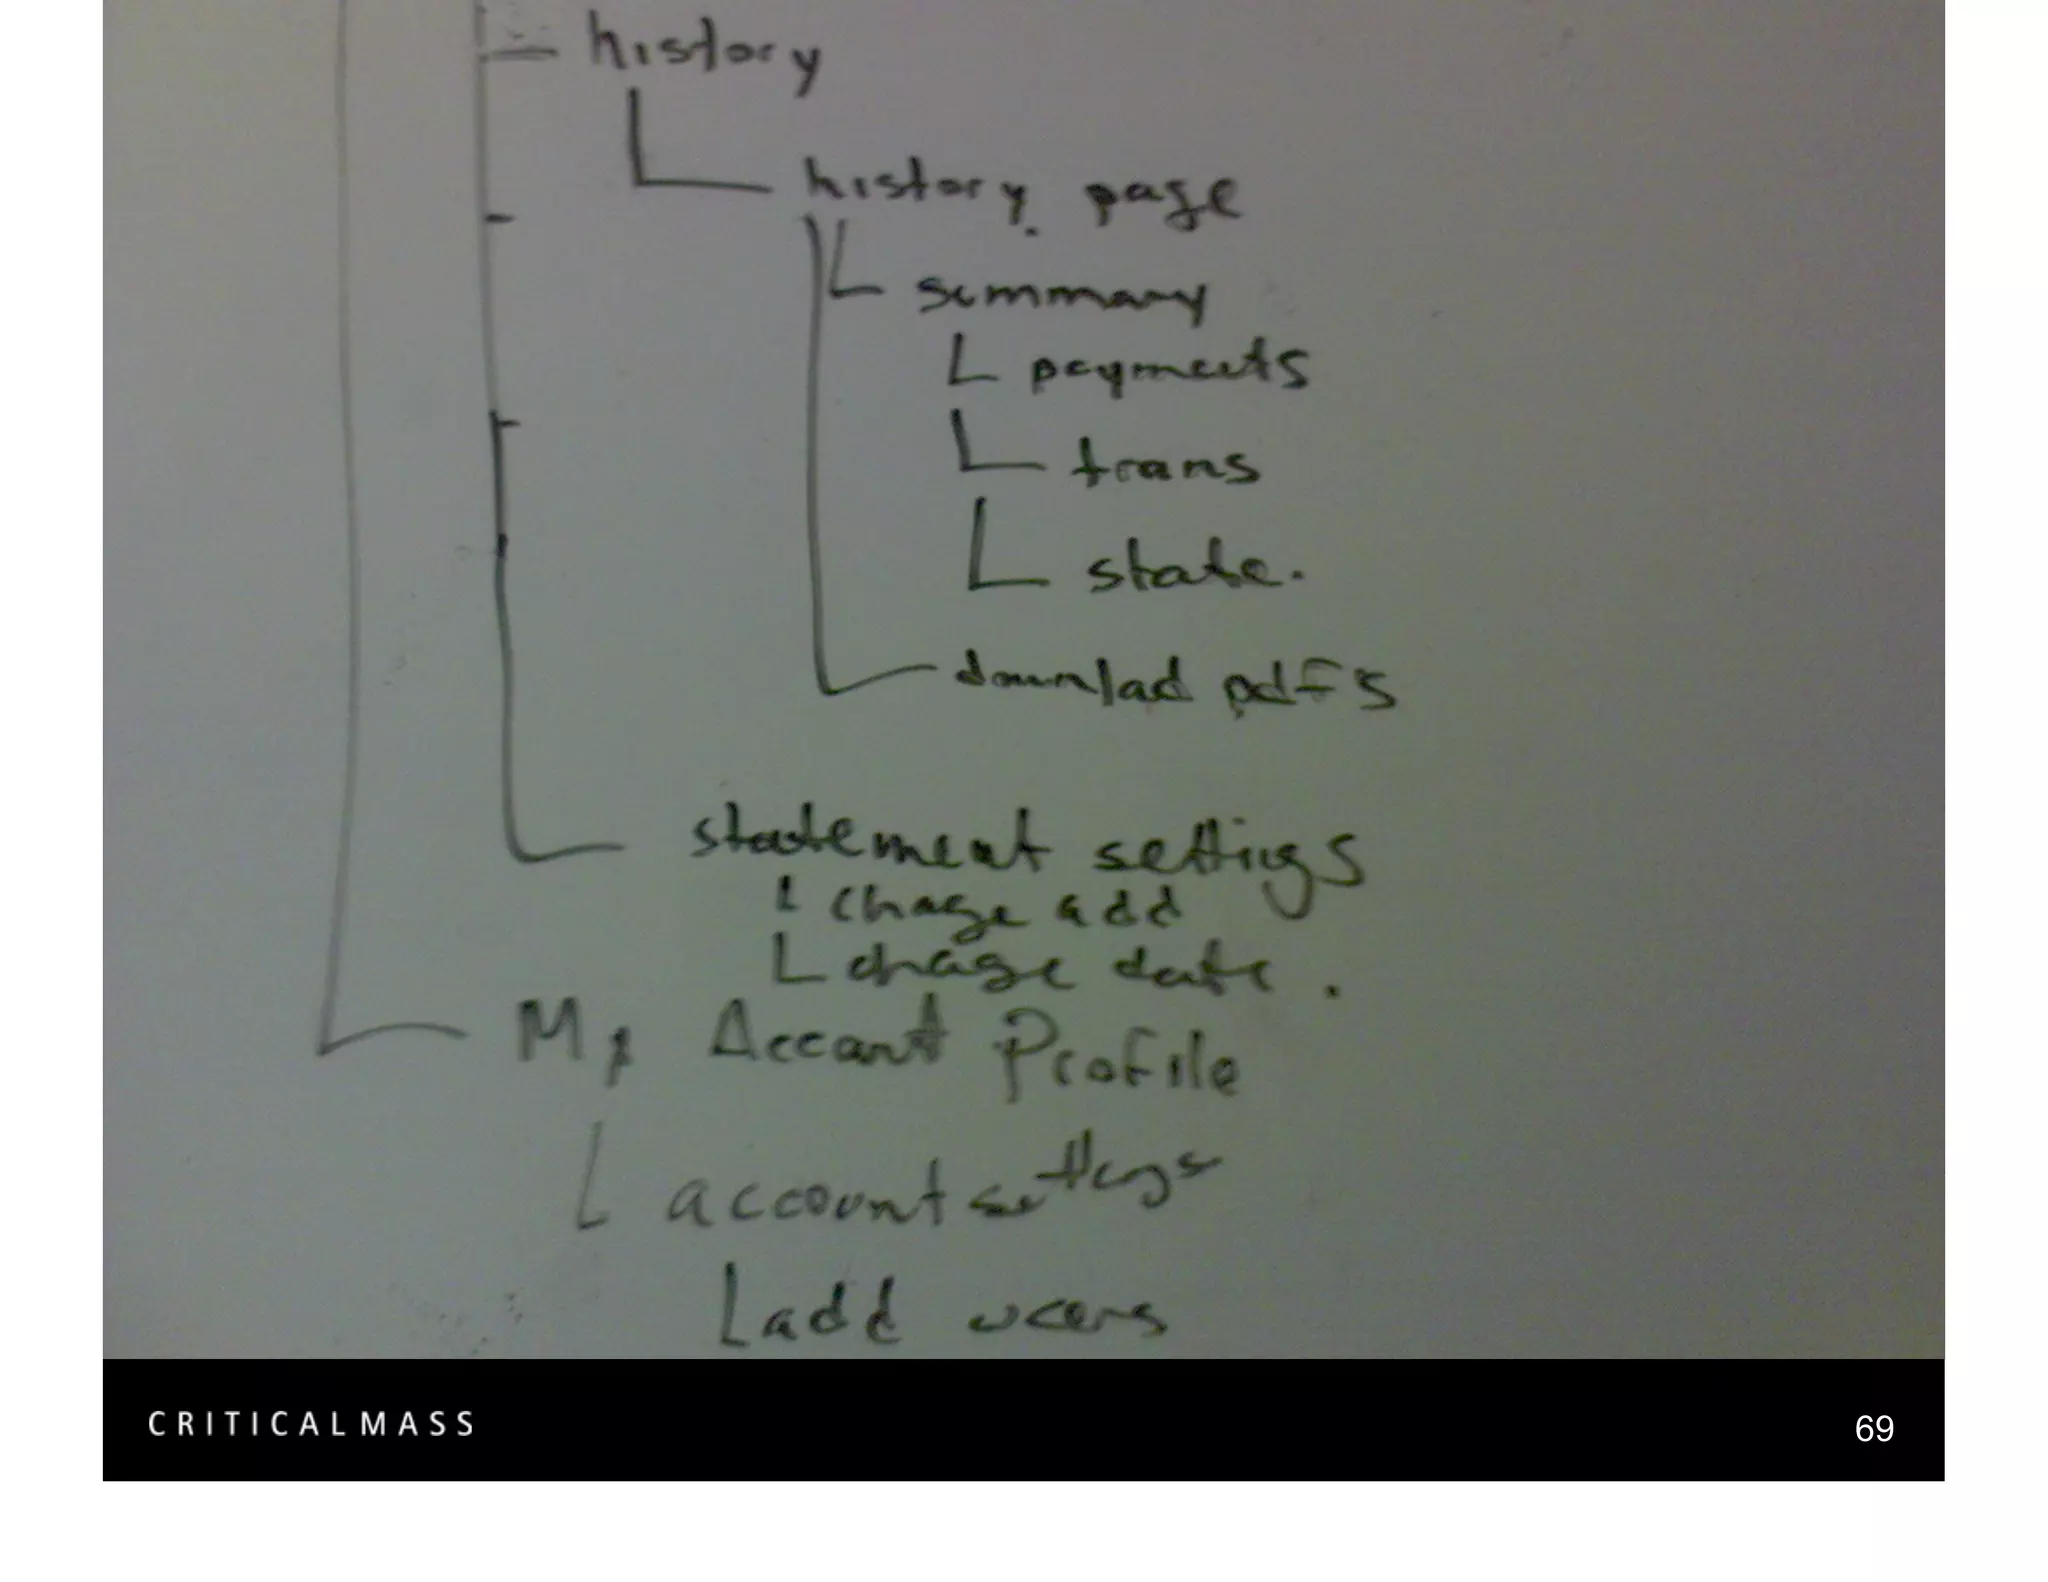 history
history page
summary
payments
trans
state.
downlad pdfs
statement settings
chage add
chage date.
My Account Profile
account settings
add users
CRITICALMASS
69